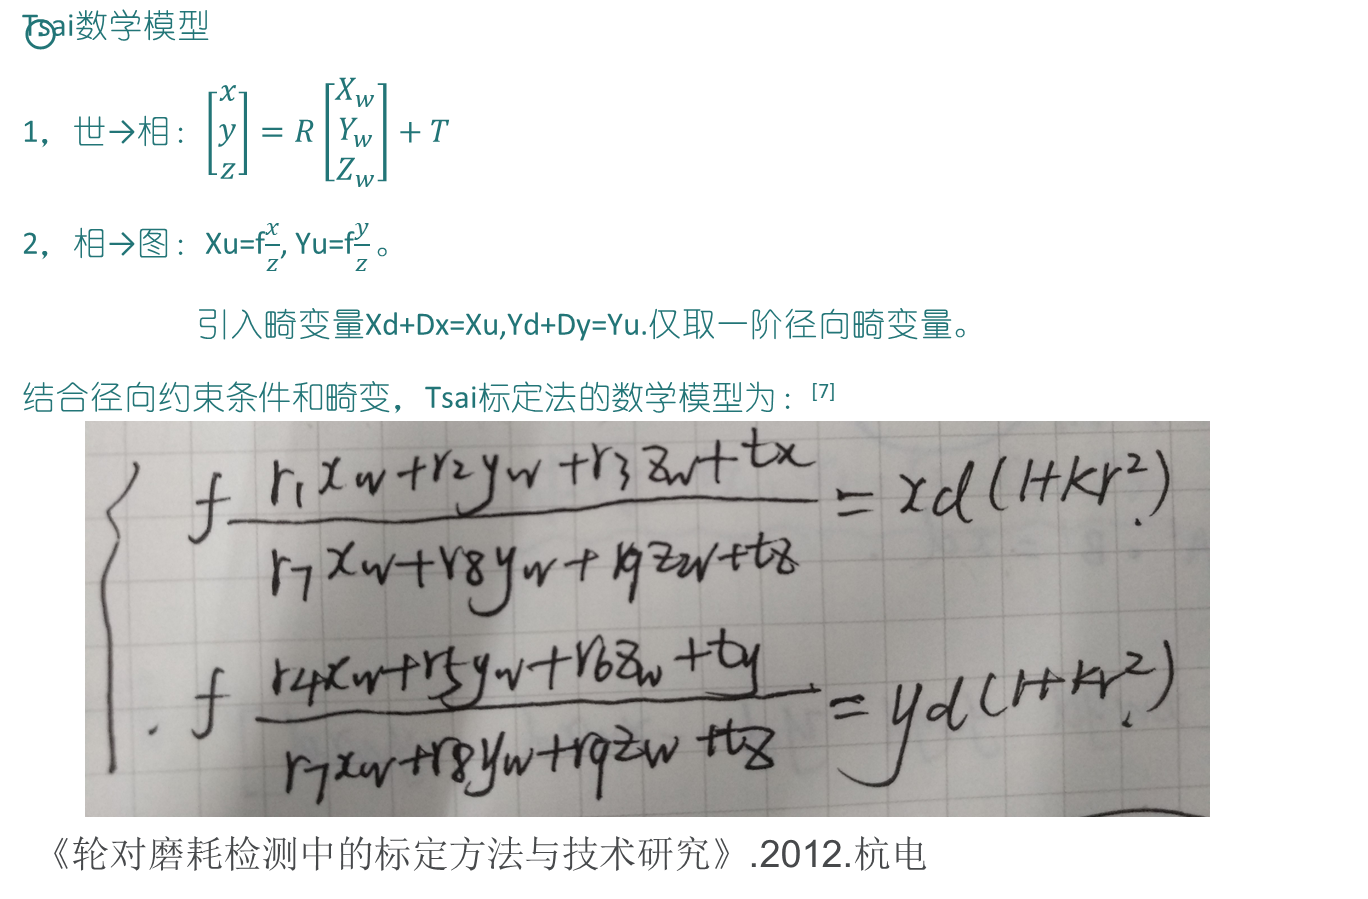 Tsai数学模型
1，世→相：[x y z] = R [X_w Y_w Z_w] + T
2，相→图：Xu=f x/z, Yu=f y/z 。
引入畸变量Xd+Dx=Xu,Yd+Dy=Yu.仅取一阶径向畸变量。
结合径向约束条件和畸变，Tsai标定法的数学模型为：[7]
f (r1xw+r2yw+r3zw+tx)/(r7xw+r8yw+r9zw+tz) = xd(1+kr²)
f (r4xw+r5yw+r6zw+ty)/(r7xw+r8yw+r9zw+tz) = yd(1+kr²)
《轮对磨耗检测中的标定方法与技术研究》.2012.杭电